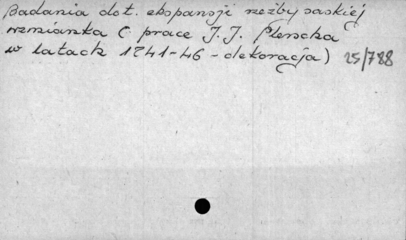 Badania dot. ekspansji rzeźby saskiej
wzmianka ( prace J. J. Plerscha
w latach 1741-46 - dekoracja) 25/788